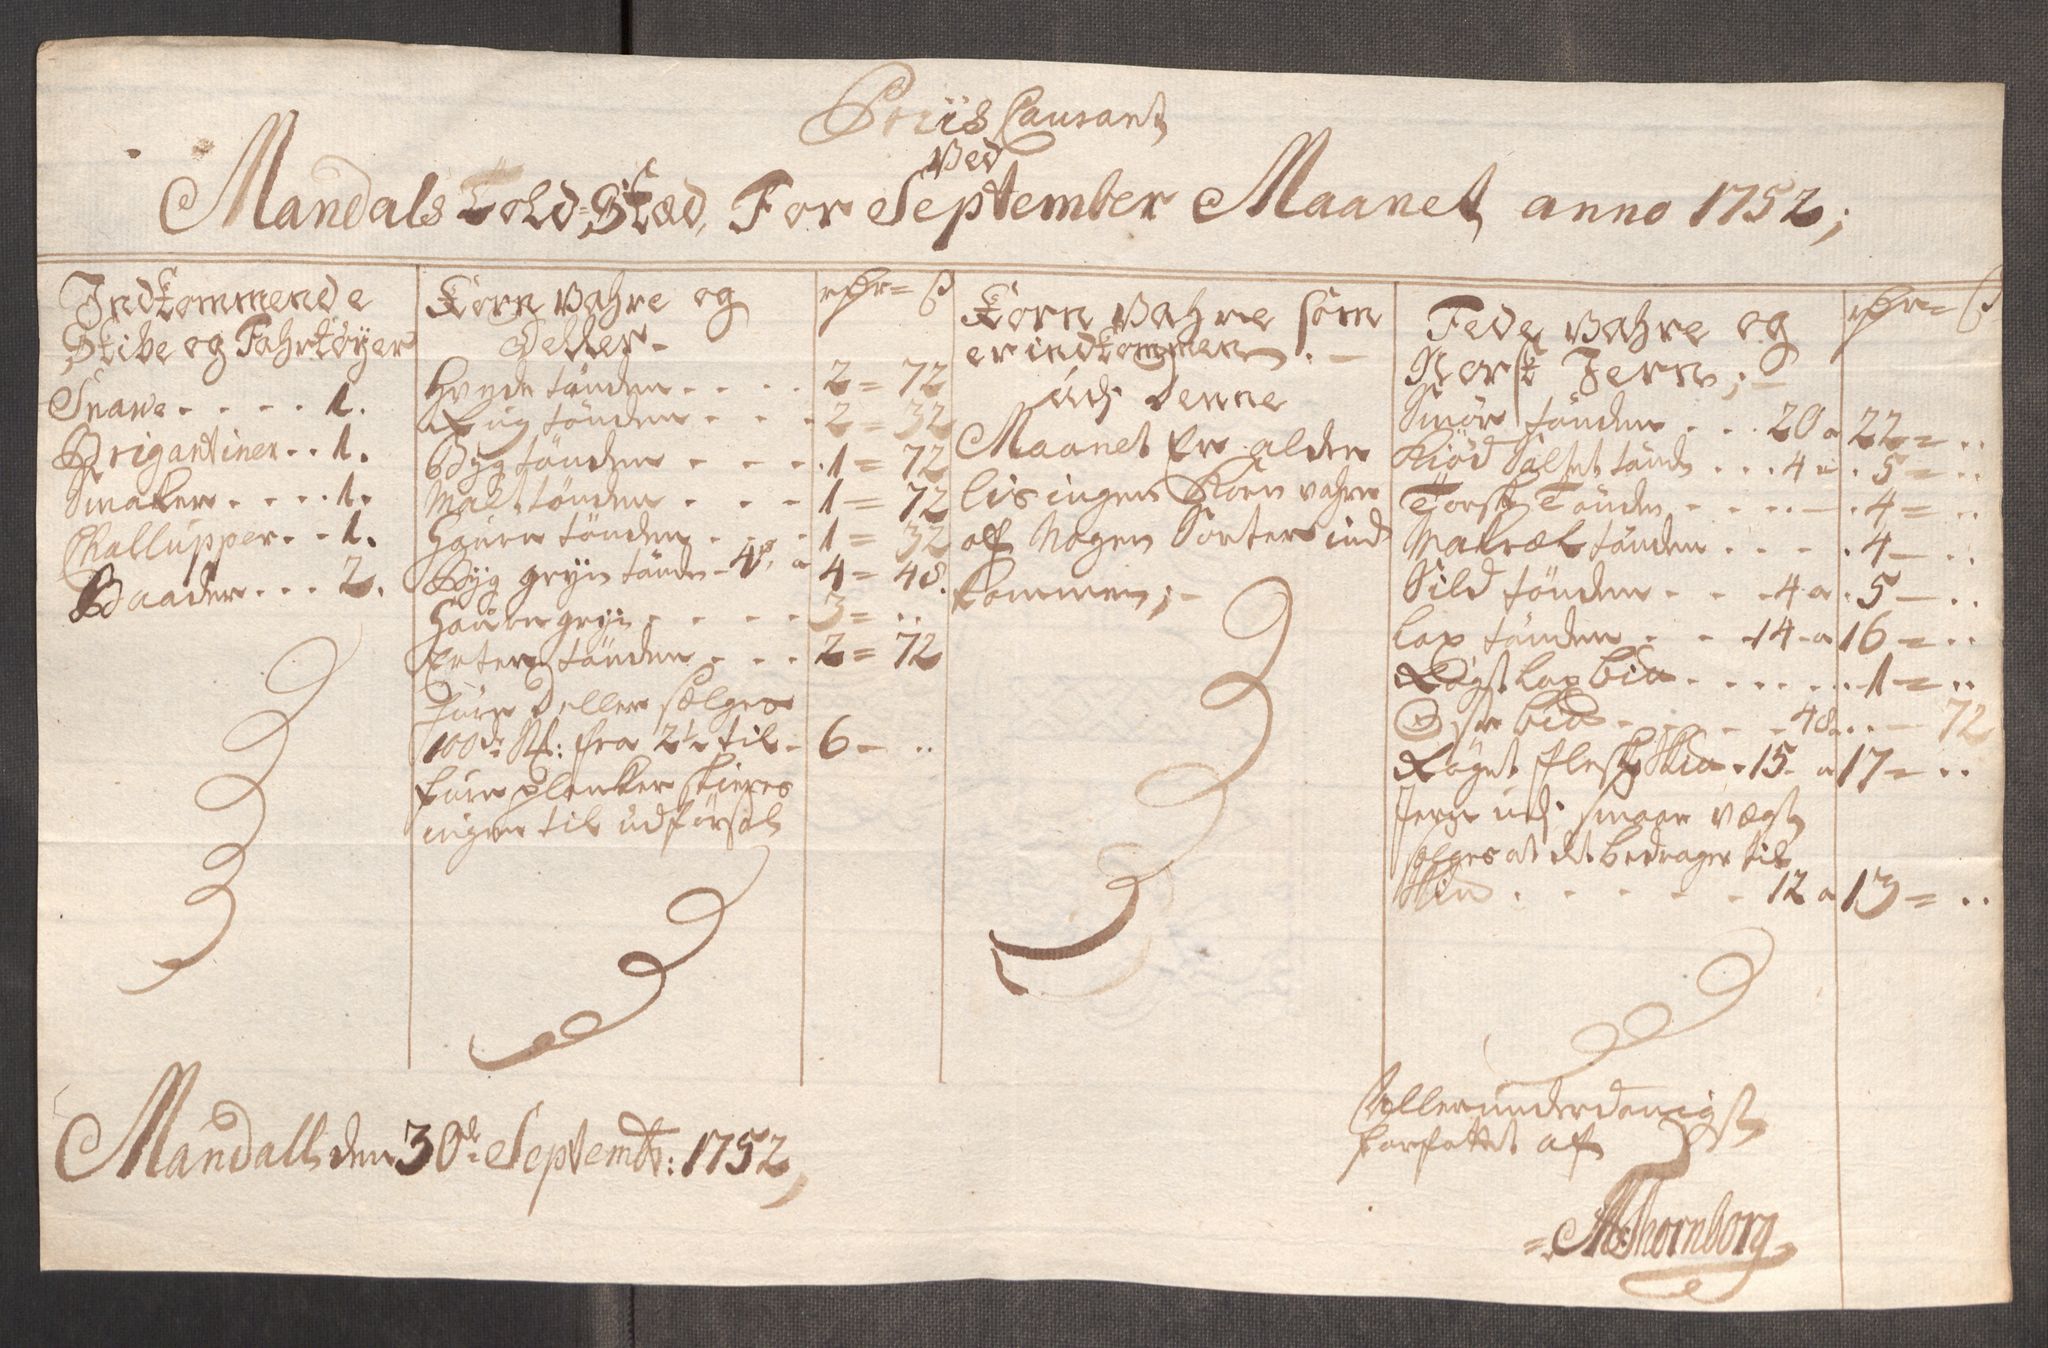 Priis Courant
Ved
Mandals Told-Stæd, For September Maanet anno 1752;
Indkommende
Skibe og Fahrtøyer
Snawe .... 1.
Brigantiner .. 1.
Smaker .... 1.
Challupper .. 1.
Baader ... 2.
Korn Vahre og
Deller - rdr = ß
Hvede tønden .... 2 = 72
Rug tønden .... 2 = 32
Byg tønden .... 1 = 72
Malt tønden .... 1 = 72
Haure tønden .... 1 = 32
Byg gryn tønde - 4, a 4 = 48.
Haure gryn .... 3 = ..
Erter tønden ... 2 = 72
Furu Deller sælges
100de fra 2½ til - 6 - ..
Furu planker skieres
ingen til udførsel
Korn Vahre som
er indkommen. -
udj Denne
Maanet Er alde
lis ingen Korn vahre
af Nogen Sorter ind
kommen; -
Fede Vahre og rdr = ß
Norsk Jern; -
Smør tønden ... 20 a 22 = ..
Kiød Saltet tønde ... 4 a 5 = ..
Torsk Tønden .... 4 = ..
Makræl tønden .... 4 - ..
Sild tønden ... 4 a 5 - ..
Lax tønden .. 14 - a 16 = ..
Røgt Lax bid ...... 1 = ..
Oste bid .... 48 a .. - 72
Røget flesk Skid . 15 - a 17 - ..
Jern udj smaae vægt
sælges at det bedrager til
Skid ..... 12 a 13 = ..
Mandall den 30de Septembr: 1752,
Allerunderdanigst
forfattet af
Thornborg